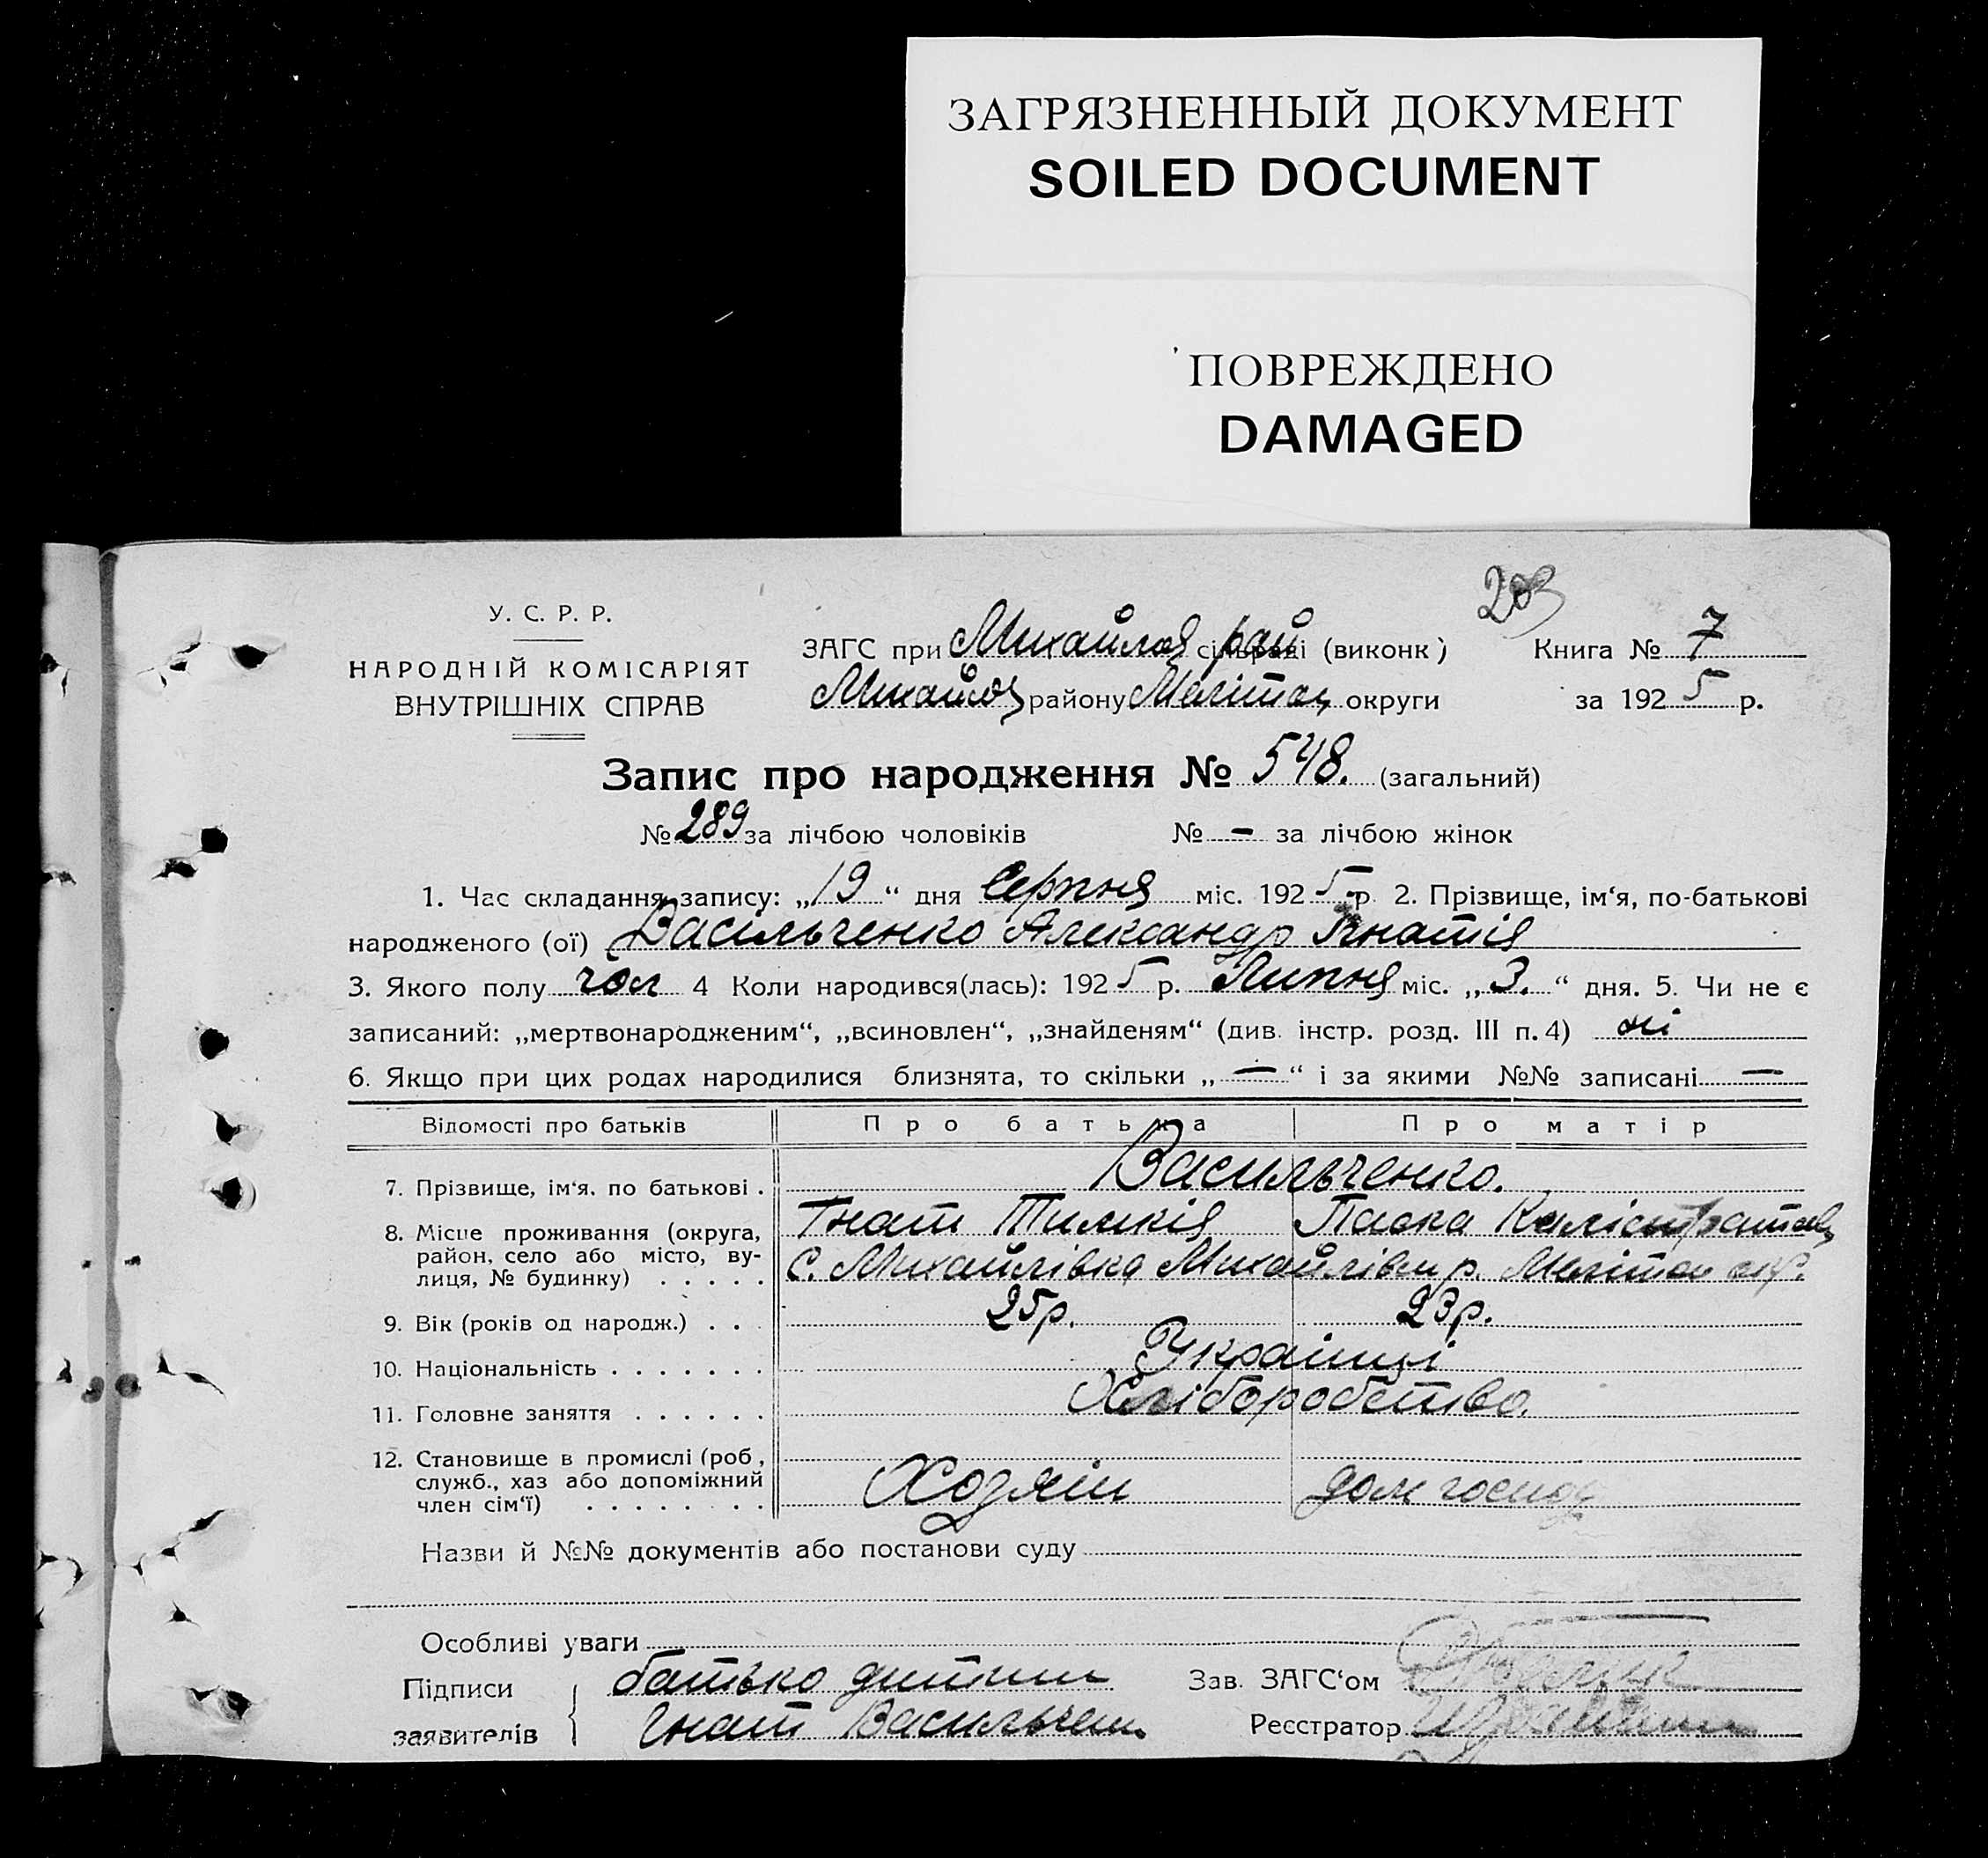 ЗАГРЯЗНЕННЫЙ ДОКУМЕНТ
SOILED DOCUMENT
ПОВРЕЖДЕНО
DAMAGED
203
У. С. Р. Р.
НАРОДНІЙ КОМІСАРІЯТ
ВНУТРІШНІХ СПРАВ
ЗАГС при Михайлов сільраді рай (виконк) Книга № 7
Михайлов району Меліт округи за 1925 р.
Запис про народження № 548. (загальний)
№ 289 за лічбою чоловіків № — за лічбою жінок
1. Час складання запису: „19“ дня Серпня міс. 1925 р. 2. Прізвище, ім‘я, по-батькові
народженого (ої) Васільченко Александр Гнатів
3. Якого полу чол 4 Коли народився(лась): 1925 р. Липня міс. „3.“ дня. 5. Чи не є
записаний: „мертвонародженим“, „всиновлен“, „знайденям“ (див. інстр. розд. III п. 4) ні
6. Якщо при цих родах народилися близнята, то скільки „—“ і за якими №№ записані —
Відомості про батьків Про батька Про матір
7. Прізвище, ім‘я. по батькові . Васильченко.
Гнат Тимків Параска Калістратов
8. Місце проживання (округа,
район, село або місто, ву-
лиця, № будинку) . . . . . с. Михайлівка Михайлівськ р. Мелітоп окр.
9. Вік (років од народж.) . . . 25 р. 23 р.
10. Національність . . . . . . . Українці
11. Головне заняття . . . . . . Хліборобство.
12. Становище в промислі (роб,
служб., хаз або допоміжний
член сім‘ї) . . . . . . . . Хозяїн дом господ
Назви й №№ документів або постанови суду
Особливі уваги
Підписи батько дитини Зав. ЗАГС‘ом
заявителів Гнат Васильчен Реєстратор